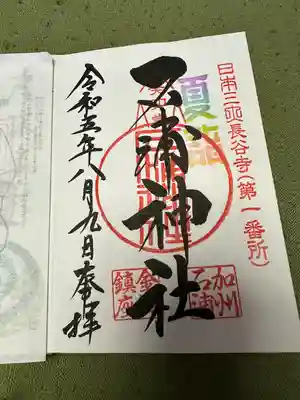 日本三所長谷寺(第一番所)
夏詣
石浦神社
加州
石浦
金沢
鎮座
令和五年八月九日奉拝